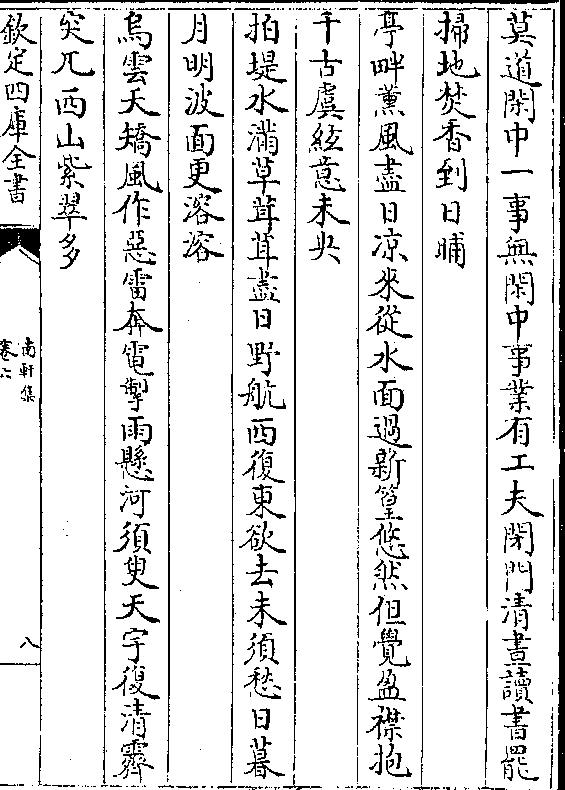 莫道閑中一事無閑中事業有工夫閉門清晝讀書罷
掃地焚香到日晡
亭畔薰風盡日凉來從水面過新篁悠然但覺盈襟抱
千古虞絃意未央
拍堤水滿草茸茸盡日野航西復東欲去未須愁日暮
月明波面更溶溶
烏雲夭矯風作惡雷奔電掣雨懸河須臾天宇復清霽
突兀西山紫翠多
欽定四庫全書
南軒集
卷六
八